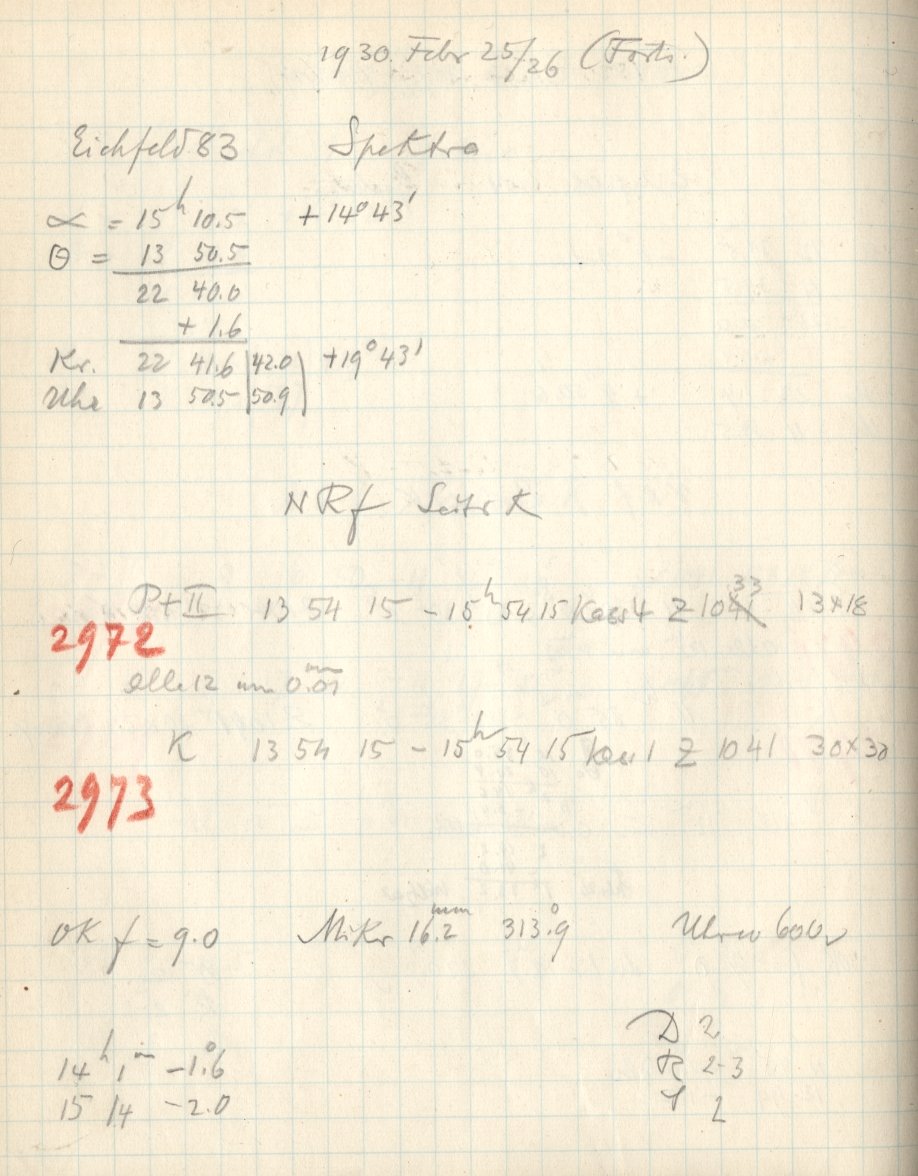 1930. Febr 25/26 (Forts.)
Eichfeld 83 Spektra
α = 15h 10.5 +14° 43'
Θ = 13 50.5
22 40.0
+ 1.6
Kr. 22 41.6 | 42.0 | +19° 43'
Uhr 13 50.5 | 50.9 |
NRf Seite K
P+II 13 54 15 – 15h 54 15 Kass 4 Z 1033 13×18
2972
alle 12 um 0.01 mm
K 13 54 15 – 15h 54 15 Kass 1 Z 1041 30×30
2973
OK f = 9.0 Mikr 16.2 mm 313.°9 Uhren
14h 1m –1.°6
15 14 –2.0
D 2
R 2-3
2